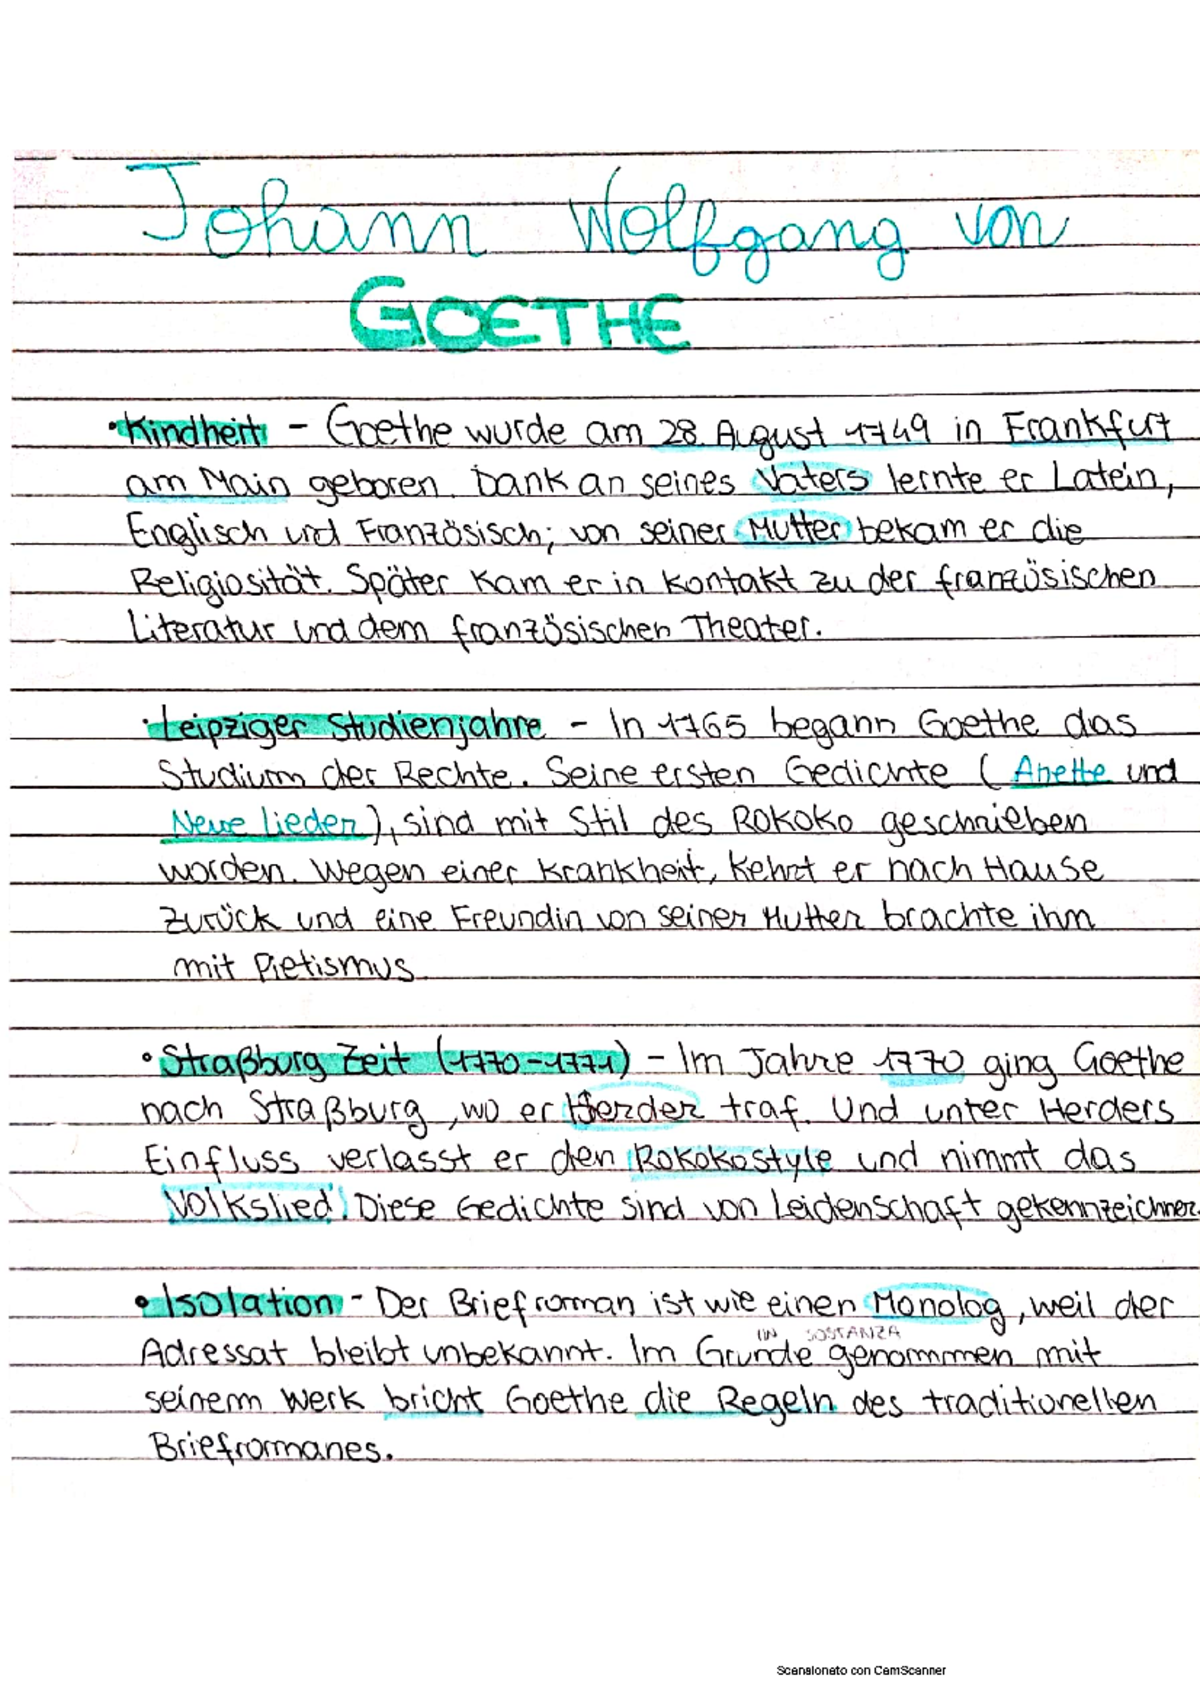 Johann Wolfgang von
GOETHE
• Kindheit - Goethe wurde am 28. August 1749 in Frankfurt
am Main geboren. Dank an seines Vaters lernte er Latein,
Englisch und Französisch; von seiner Mutter bekam er die
Religiosität. Später kam er in kontakt zu der französischen
Literatur und dem französischen Theater.
• Leipziger Studienjahre - In 1765 begann Goethe das
Studium der Rechte. Seine ersten Gedichte (Anette und
Neue lieder), sind mit Stil des Rokoko geschrieben
worden. Wegen einer krankheit, kehrt er nach Hause
zurück und eine Freundin von seiner Mutter brachte ihm
mit Pietismus.
• Straßburg Zeit (1770-1771) - Im Jahre 1770 ging Goethe
nach Straßburg, wo er Herder traf. Und unter Herders
Einfluss verlasst er den Rokokostyle und nimmt das
Volkslied. Diese Gedichte sind von Leidenschaft gekennzeichnet.
• Isolation - Der Briefroman ist wie einen Monolog, weil der
IN SOSTANZA
Adressat bleibt unbekannt. Im Grunde genommen mit
seinem Werk bricht Goethe die Regeln des traditionellen
Briefromanes.
Scansionato con CamScanner